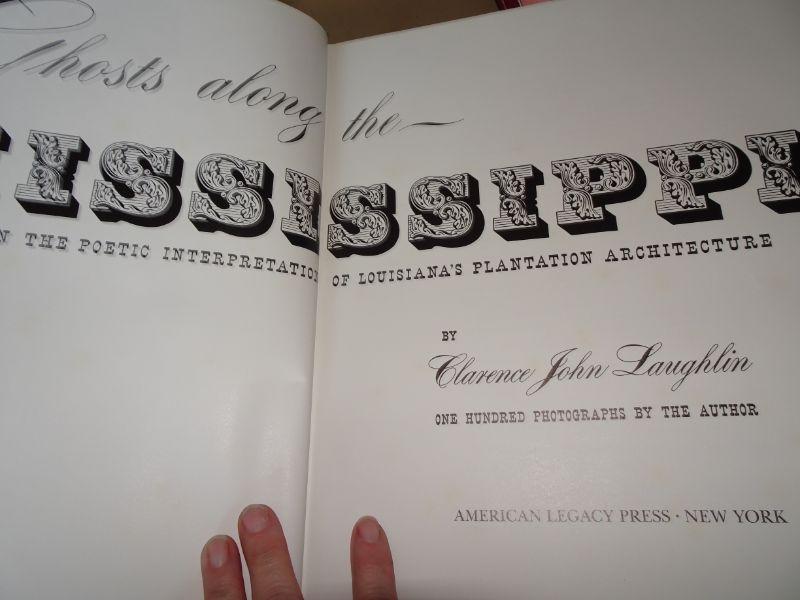 Ghosts along the
ISSISSIPPI
N THE POETIC INTERPRETATION OF LOUISIANA'S PLANTATION ARCHITECTURE
BY
Clarence John Laughlin
ONE HUNDRED PHOTOGRAPHS BY THE AUTHOR
AMERICAN LEGACY PRESS · NEW YORK